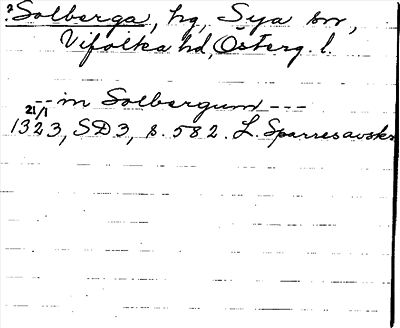 ? Solberga, hg, Sya sn,
Vifolka hd, Österg. l.
-- in Solbergum ---
21/1
1323, SD 3, s. 582. L. Sparres avskr